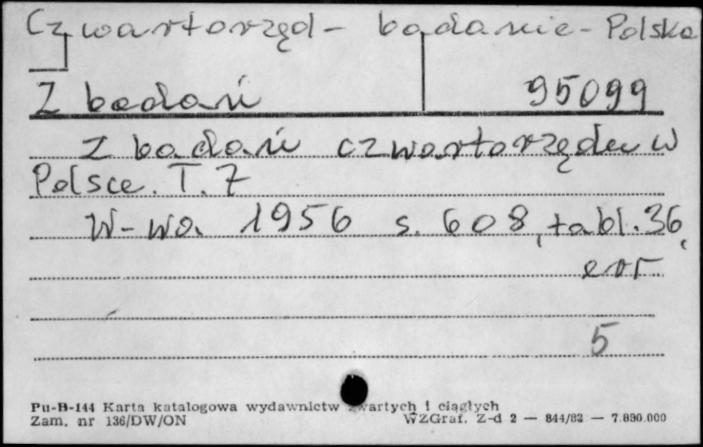 Czwartorzęd - badanie - Polska
Z badań 95099
Z badań czwartorzędu w
Polsce. T. 7
W-wa 1956 s. 608, tabl. 36,
err
5
Pu-B-144 Karta katalogowa wydawnictw zwartych i ciągłych
Zam. nr 136/DW/ON WZGraf. Z-d 2 — 844/82 — 7.890.000